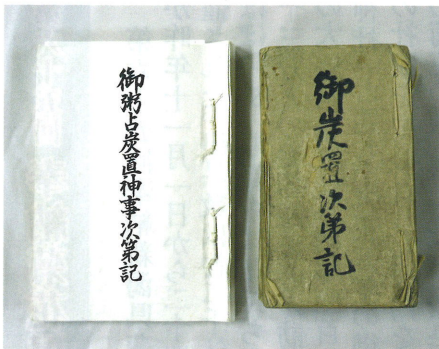 御粥占炭置神事次第記
御炭置次第記